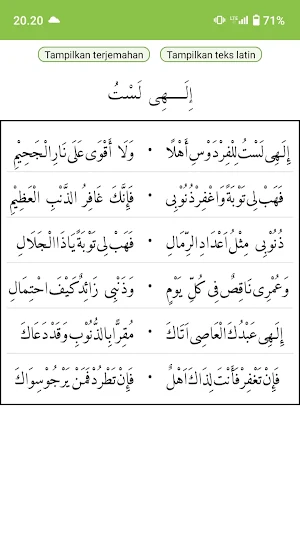 20.20 LTE 71%
Tampilkan terjemahan Tampilkan teks latin
إِلَـــهِى لَسْتُ
إِلَهِى لَسْتُ لِلْفِرْدَوْسِ أَهْلًا • وَلَا أَقْوَى عَلَى نَارِ الْجَحِيْمِ
فَهَبْ لِى تَوْبَةً وَاغْفِرْ ذُنُوْبِى • فَإِنَّكَ غَافِرُ الذَّنْبِ الْعَظِيْمِ
ذُنُوْبِى مِثْلُ أَعْدَادِ الرِّمَالِ • فَهَبْ لِى تَوْبَةً يَاذَا الْجَلَالِ
وَعُمْرِى نَاقِصٌ فِى كُلِّ يَوْمٍ • وَذَنْبِى زَائِدٌ كَيْفَ احْتِمَالِ
إِلَهِى عَبْدُكَ الْعَاصِى أَتَاكَ • مُقِرًّا بِالذُّنُوْبِ وَقَدْ دَعَاكَ
فَإِنْ تَغْفِرْ فَأَنْتَ لِذَاكَ أَهْلٌ • فَإِنْ تَطْرُدْ فَمَنْ يَرْجُوْ سِوَاكَ